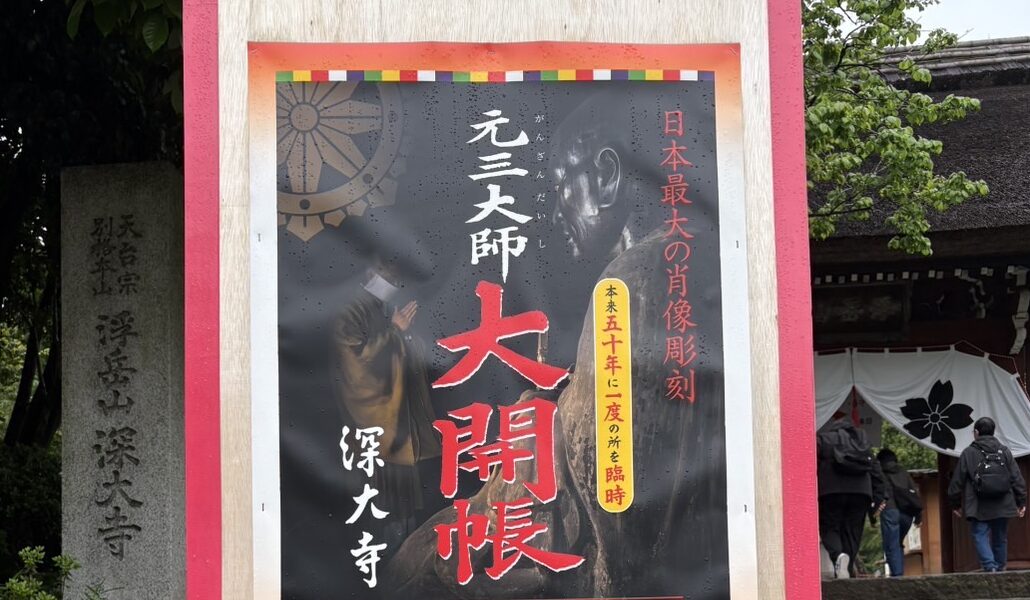 日本最大の肖像彫刻
本来五十年に一度の所を臨時
がんざんだいし
元三大師
大開帳
深大寺
天台宗
別格本山
浮岳山 深大寺